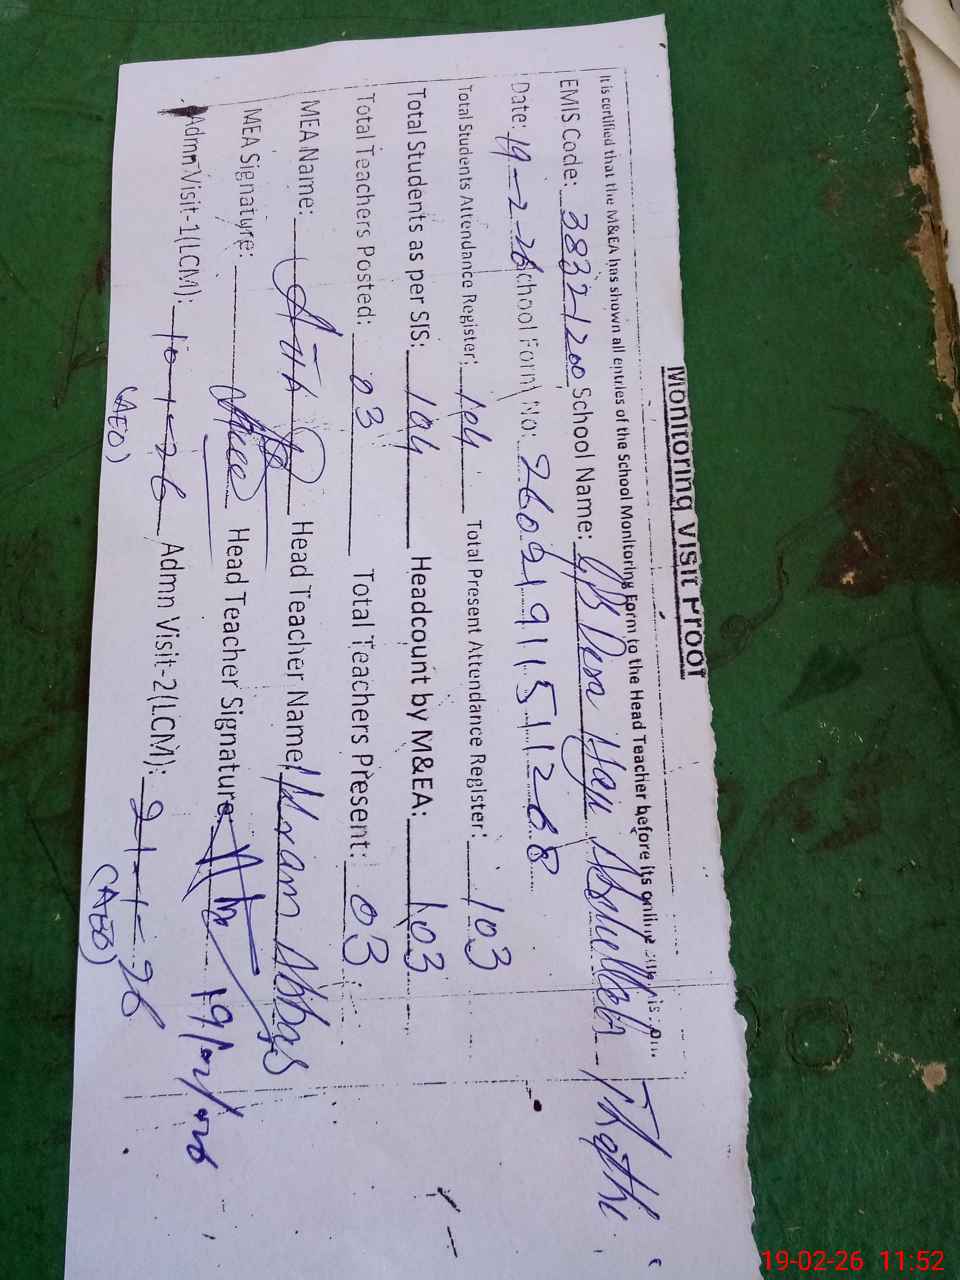 Monitoring Visit Proof
It is certified that the M&EA has shown all entries of the School Monitoring Form to the Head Teacher before its online
EMIS Code: 38321200 School Name: Haji Abdullah
Date: 19-2-26 School Form No: 26021911511268
Total Students Attendance Register: 104 Total Present Attendance Register: 103
Total Students as per SIS: 104 Headcount by M&EA: 103
Total Teachers Posted: 03 Total Teachers Present: 03
MEA Name: Head Teacher Name: Abbas
MEA Signature: Head Teacher Signature
Admn Visit-1(LCM): 10-1-26 Admn Visit-2(LCM): 21-1-26
(AEO) (AEO)
19-02-26 11:52